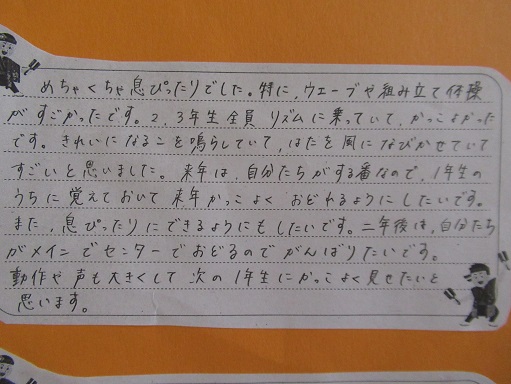 めちゃくちゃ息ぴったりでした。特に、ウェーブや組み立て体操
がすごかったです。2、3年生全員リズムに乗っていて、かっこよかった
です。きれいになるこを鳴らしていて、はたを風になびかせていて
すごいと思いました。来年は、自分たちがする番なので、1年生の
うちに覚えておいて来年かっこよくおどれるようにしたいです。
また、息ぴったりにできるようにもしたいです。二年後は、自分たち
がメインでセンターでおどるのでがんばりたいです。
動作や声も大きくして次の1年生にかっこよく見せたいと
思います。